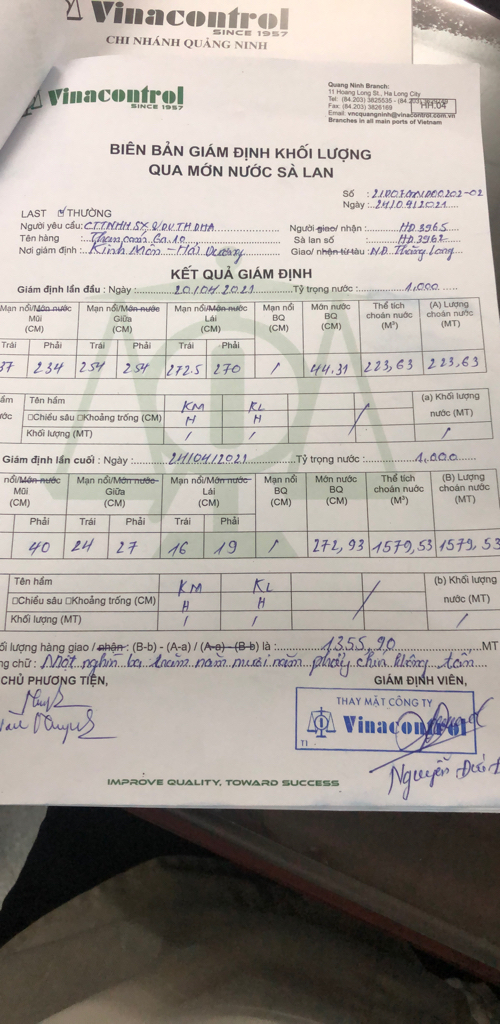 Vinacontrol
SINCE 1957
CHI NHÁNH QUẢNG NINH
Vinacontrol
SINCE 1957
Quang Ninh Branch:
11 Hoang Long St., Ha Long City
Tel: (84.203) 3825535 - (84.203)
Fax: (84.203) 3826169
Email: vncquangninh@vinacontrol.com.vn
Branches in all main ports of Vietnam
HH.04
BIÊN BẢN GIÁM ĐỊNH KHỐI LƯỢNG
QUA MỚN NƯỚC SÀ LAN
Số :
Ngày : 24/04/2021
LAST THƯỜNG
Người yêu cầu: CTTNHH SX & DV TH DMA Người giao/ nhận : HD 3965
Tên hàng : Than cám 6a.10 Sà lan số : HD 3967
Nơi giám định : Kinh Môn - Hải Dương Giao/ nhận từ tàu : NĐ Thăng Long
KẾT QUẢ GIÁM ĐỊNH
Giám định lần đầu : Ngày : 20/04/2021 Tỷ trọng nước : 1,000
Mạn nổi/Món nước Mũi (CM) Mạn nổi/Món nước Giữa (CM) Mạn nổi/Món nước Lái (CM) Mạn nổi BQ (CM) Mớn nước BQ (CM) Thể tích choán nước (M³) (A) Lượng choán nước (MT)
Trái Phải Trái Phải Trái Phải
37 234 254 254 272.5 270 / 44,31 223,63 223,63
Tên hầm KM KL / (a) Khối lượng nước (MT)
□Chiều sâu □Khoảng trống (CM) H H
Khối lượng (MT) / / /
Giám định lần cuối : Ngày : 24/04/2021 Tỷ trọng nước : 1,000
nổi/Món nước Mũi (CM) Mạn nổi/Món nước Giữa (CM) Mạn nổi/Món nước Lái (CM) Mạn nổi BQ (CM) Mớn nước BQ (CM) Thể tích choán nước (M³) (B) Lượng choán nước (MT)
Phải Trái Phải Trái Phải
40 24 27 16 19 / 272,93 1579,53 1579,53
Tên hầm KM KL / (b) Khối lượng nước (MT)
□Chiều sâu □Khoảng trống (CM) H H
Khối lượng (MT) / / /
ối lượng hàng giao / nhận : (B-b) - (A-a) / (A-a) - (B-b) là : 1355,90 MT
ng chữ : Một nghìn ba trăm năm mươi năm phẩy chín không tấn
CHỦ PHƯƠNG TIỆN, GIÁM ĐỊNH VIÊN,
THAY MẶT CÔNG TY
Vinacontrol
T1
Nguyễn
IMPROVE QUALITY, TOWARD SUCCESS